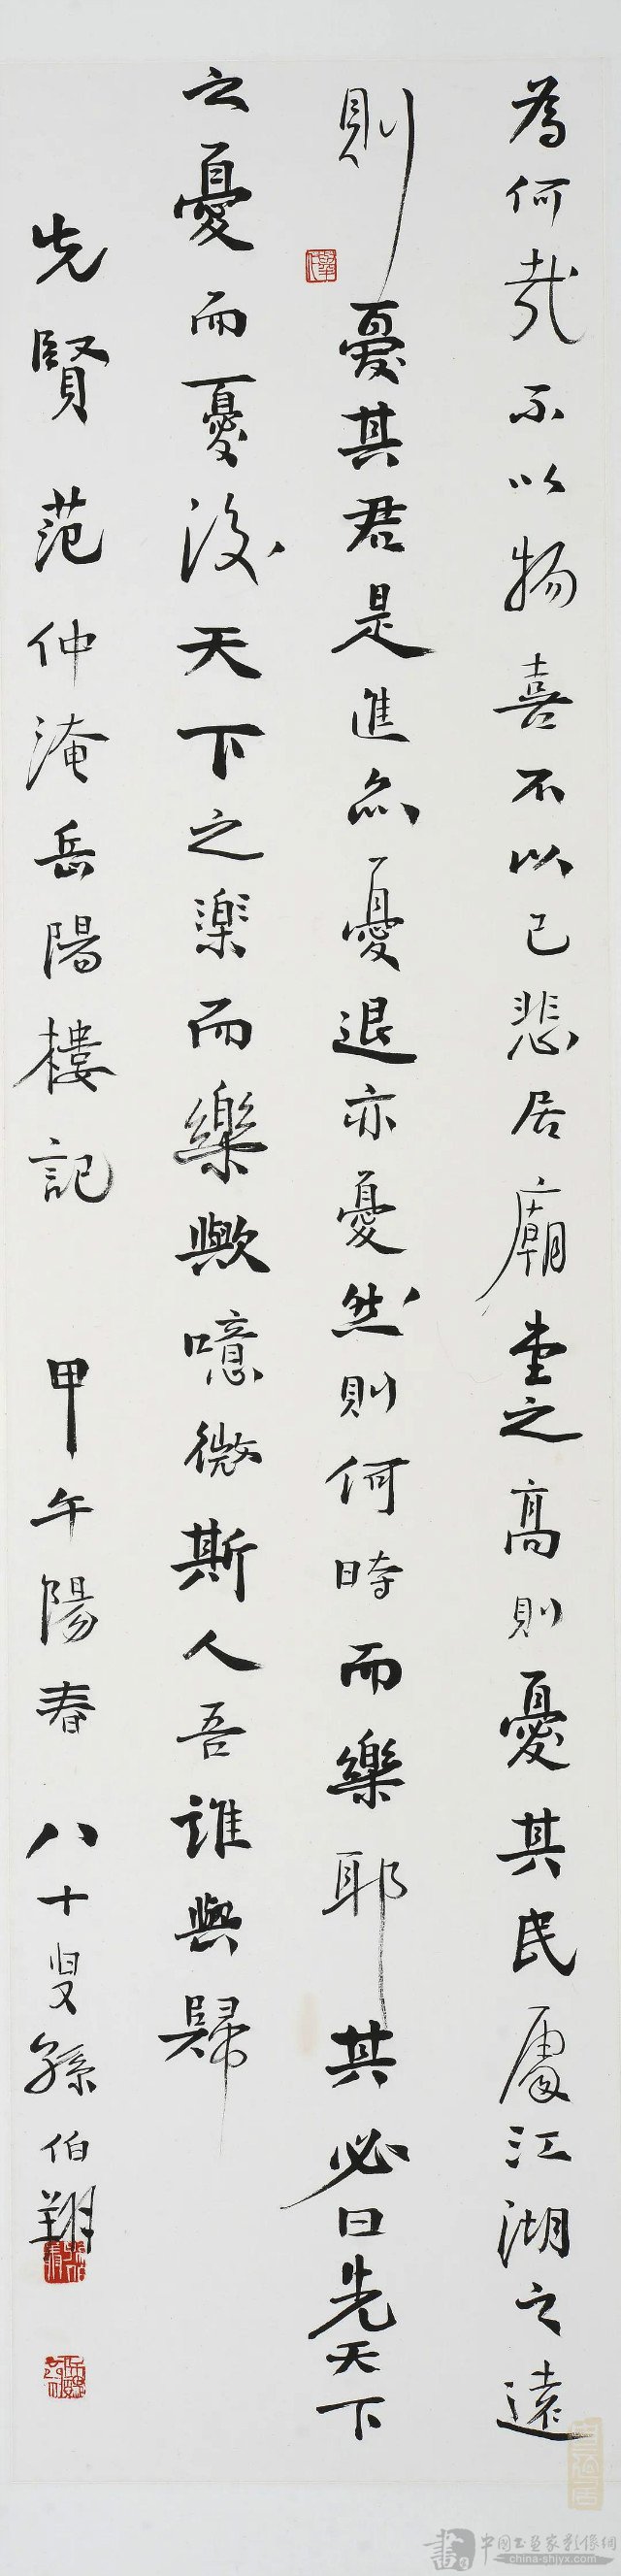 為何哉不以物喜不以己悲居廟堂之高則憂其民處江湖之遠
則憂其君是進亦憂退亦憂然則何時而樂耶其必曰先天下
之憂而憂後天下之楽而樂歟噫微斯人吾誰與歸
先賢范仲淹岳陽樓記 甲午陽春 八十叟孫伯翔
中國書畫家影像網
china-shjyx.com